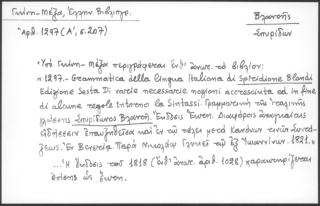 Γκίνη - Μέξα, Ἑλλην. Βιβλιογρ.
Βλαντῆς
Σπυρίδων
Ἀριθ. 1297 (Α', σ. 207)
Ὑπὸ Γκίνη - Μέξα περιγράφεται ἐνθ' ἀνωτ. τὸ βιβλίον:
« 1297.- Grammatica della lingua Italiana di Spiridione Blandi
Edizione Sesta Di varie necessarie nozioni accresciuta ed in fine
di alcune regole intorno la Sintassi. Γραμματικὴ τῆς Ἰταλικῆς
γλώσσης Σπυρίδωνος Βλαντῆ. Ἔκδοσις Ἕκτη. Διαφόροις ἀναγκαίαις
εἰδήσεσιν ἐπαυξηθεῖσα καὶ ἐν τῷ τέλει μετὰ Κανόνων τινῶν Συντά-
ξεως. Ἐν Βενετίᾳ. Παρὰ Νικολάῳ Γλυκεῖ τῷ ἐξ Ἰωαννίνων. 1821.»
...Ἡ ἔκδοσις τοῦ 1818 (ἐνθ' ἀνωτ. ἀριθ. 1028) χαρακτηρίζεται
ἐπίσης ὡς ἕκτη.